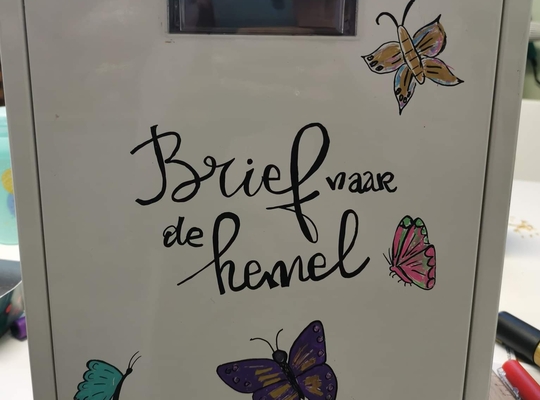 Brief naar
de hemel